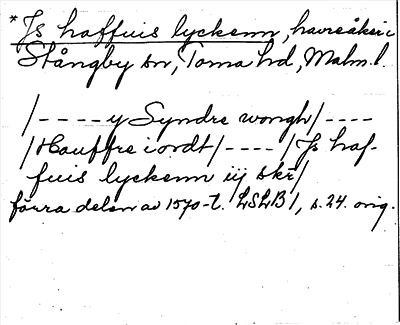 *Js haffuis lyckenn, havreåker i
Stångby sn, Torna hd, Malm. l.
/----y Syndre wongh/----
/Hauffre iordt/----/Js haf-
fuis lyckenn iij skr/
förra delen av 1570-t. LSLB 1, s. 24. orig.